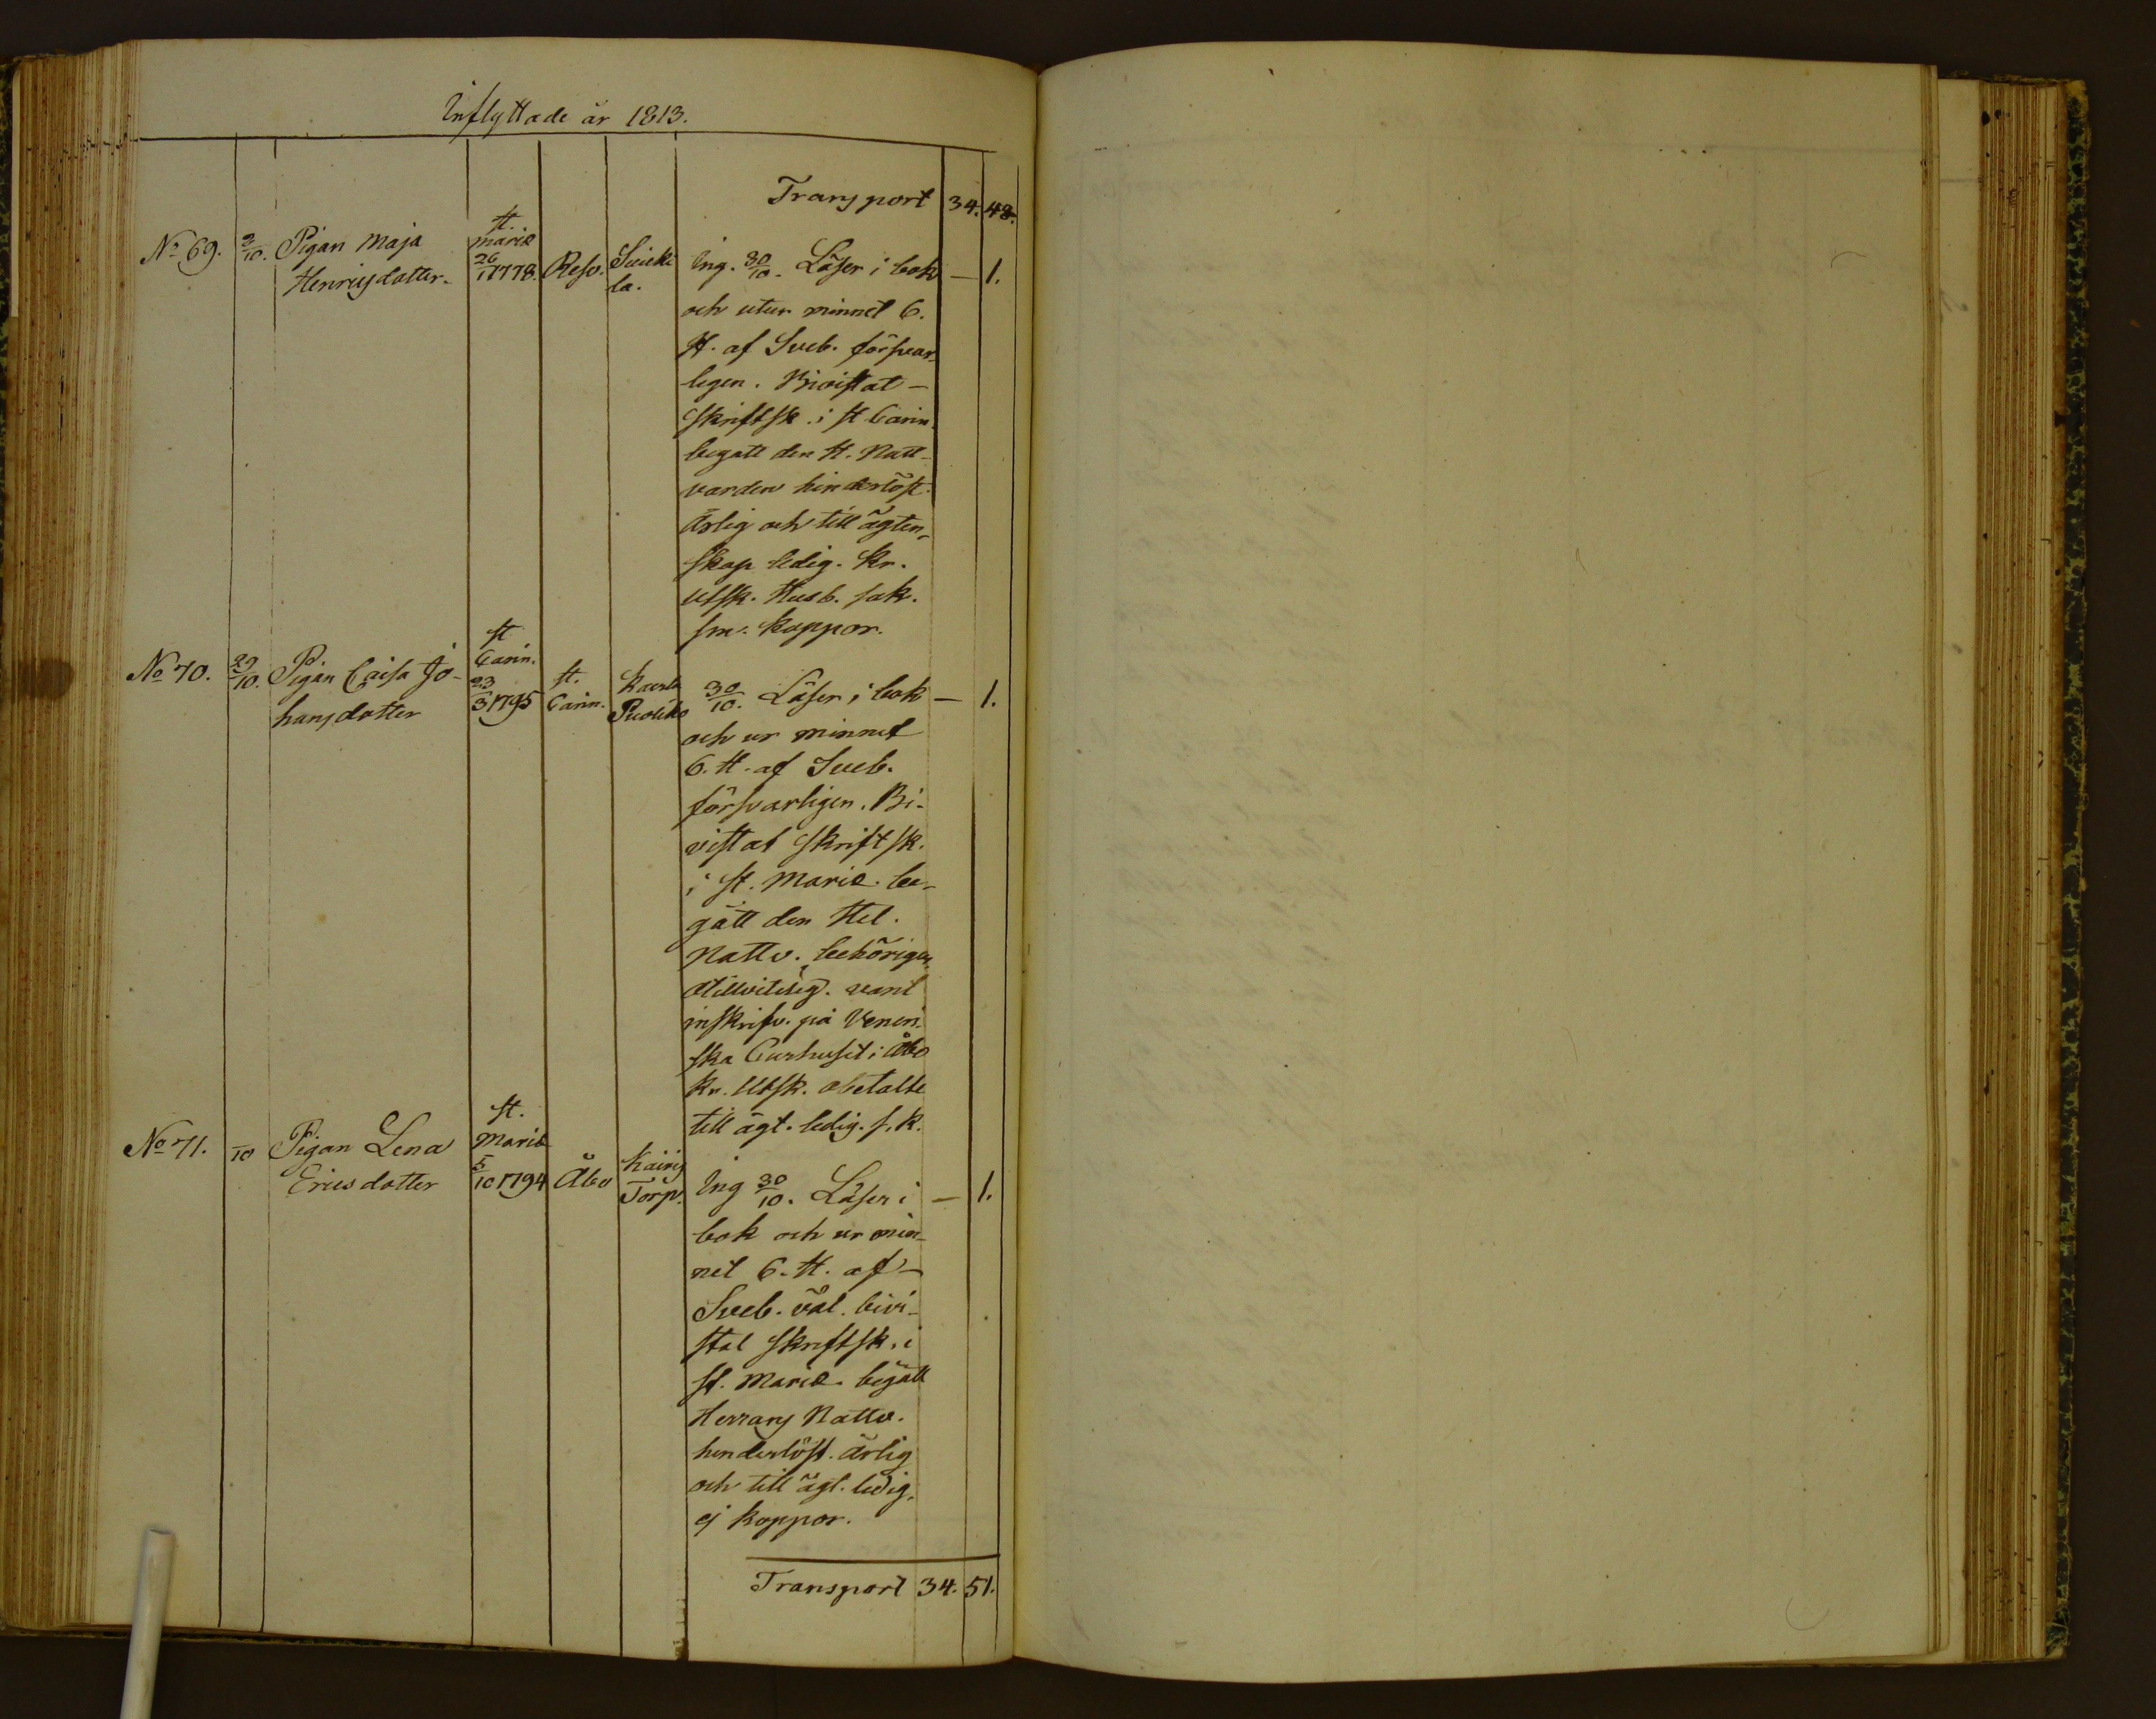 Inflyttade år 1813.
Transport 34. 48.
No 69. 2/10. Pigan Maja Henricsdotter. St. Mariæ 26/1 1778. Reso. la.
Ing. 30/10. Läser i bok — 1.
och utur minnet 6.
H. af Sveb. försvar-
ligen. Bivistat
Skriftsk. i St Carin.
begått den H. Natt-
varden hinderlöst.
Ärlig och till ägten-
skap ledig. Kr.
Utsk. Husb. sak.
sm. koppor.
No 70. 29/10. Pigan Caisa Johansdotter St Carin. 23/3 1795 St. Carin.
30/10. Läser i bok — 1.
och ur minnet
6. H. af Sveb.
försvarligen. Bi-
vistat Skriftsk.
i St. Mariæ. be-
gått den Hel.
Nattv. behörigen.
varit
inskrifv. på Veneri-
ska Curhuset i Åbo
Kr. Utsk. obetalte
till ägt. ledig. s. k.
No 71. /10 Pigan Lena Ericsdotter St. Mariæ 5/10 1794 Åbo Torp.
Ing 30/10. Läser i — 1.
bok och ur min-
net 6. H. af
Sveb. väl. bivi-
stat Skriftsk. i
St. Mariæ. begått
Herrans Nattv.
hinderlöst. Ärlig
och till ägt. ledig.
ej koppor.
Transport 34. 51.